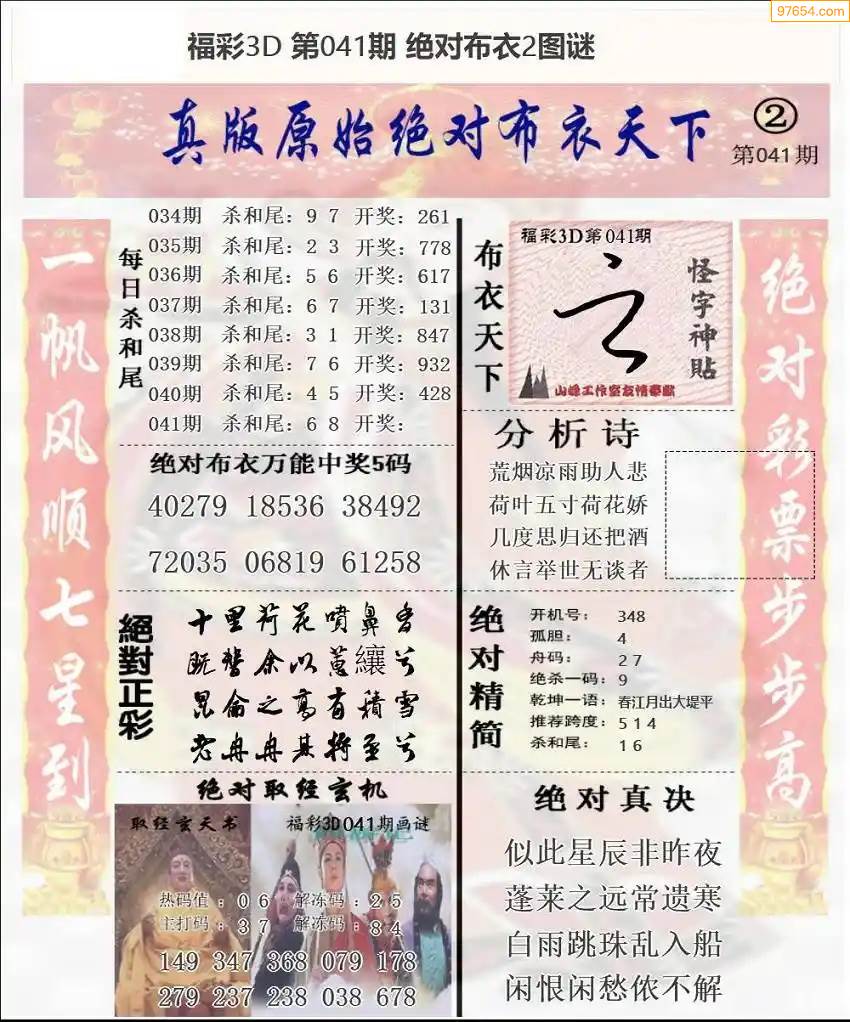 97654.com
福彩3D 第041期 绝对布衣2图谜
真版原始绝对布衣天下
②
第041期
一帆风顺七星到
每日杀和尾
034期 杀和尾：9 7 开奖：261
035期 杀和尾：2 3 开奖：778
036期 杀和尾：5 6 开奖：617
037期 杀和尾：6 7 开奖：131
038期 杀和尾：3 1 开奖：847
039期 杀和尾：7 6 开奖：932
040期 杀和尾：4 5 开奖：428
041期 杀和尾：6 8 开奖：
绝对布衣万能中奖5码
40279 18536 38492
72035 06819 61258
絕對正彩
十里荷花噴鼻香
既替余以蕙纕兮
昆侖之高有積雪
老冉冉其將至兮
绝对取经玄机
取经玄天书
福彩3D041期画谜
热码值：0 6 解冻码：2 5
主打码：3 7 解冻码：8 4
149 347 368 079 178
279 237 238 038 678
布衣天下
福彩3D第041期
怪字神貼
山峰工作室友情奉献
分析诗
荒烟凉雨助人悲
荷叶五寸荷花娇
几度思归还把酒
休言举世无谈者
绝对精简
开机号： 348
孤胆： 4
舟码： 2 7
绝杀一码：9
乾坤一语：春江月出大堤平
推荐跨度：5 1 4
杀和尾： 1 6
绝对真决
似此星辰非昨夜
蓬莱之远常遗寒
白雨跳珠乱入船
闲恨闲愁侬不解
绝对彩票步步高